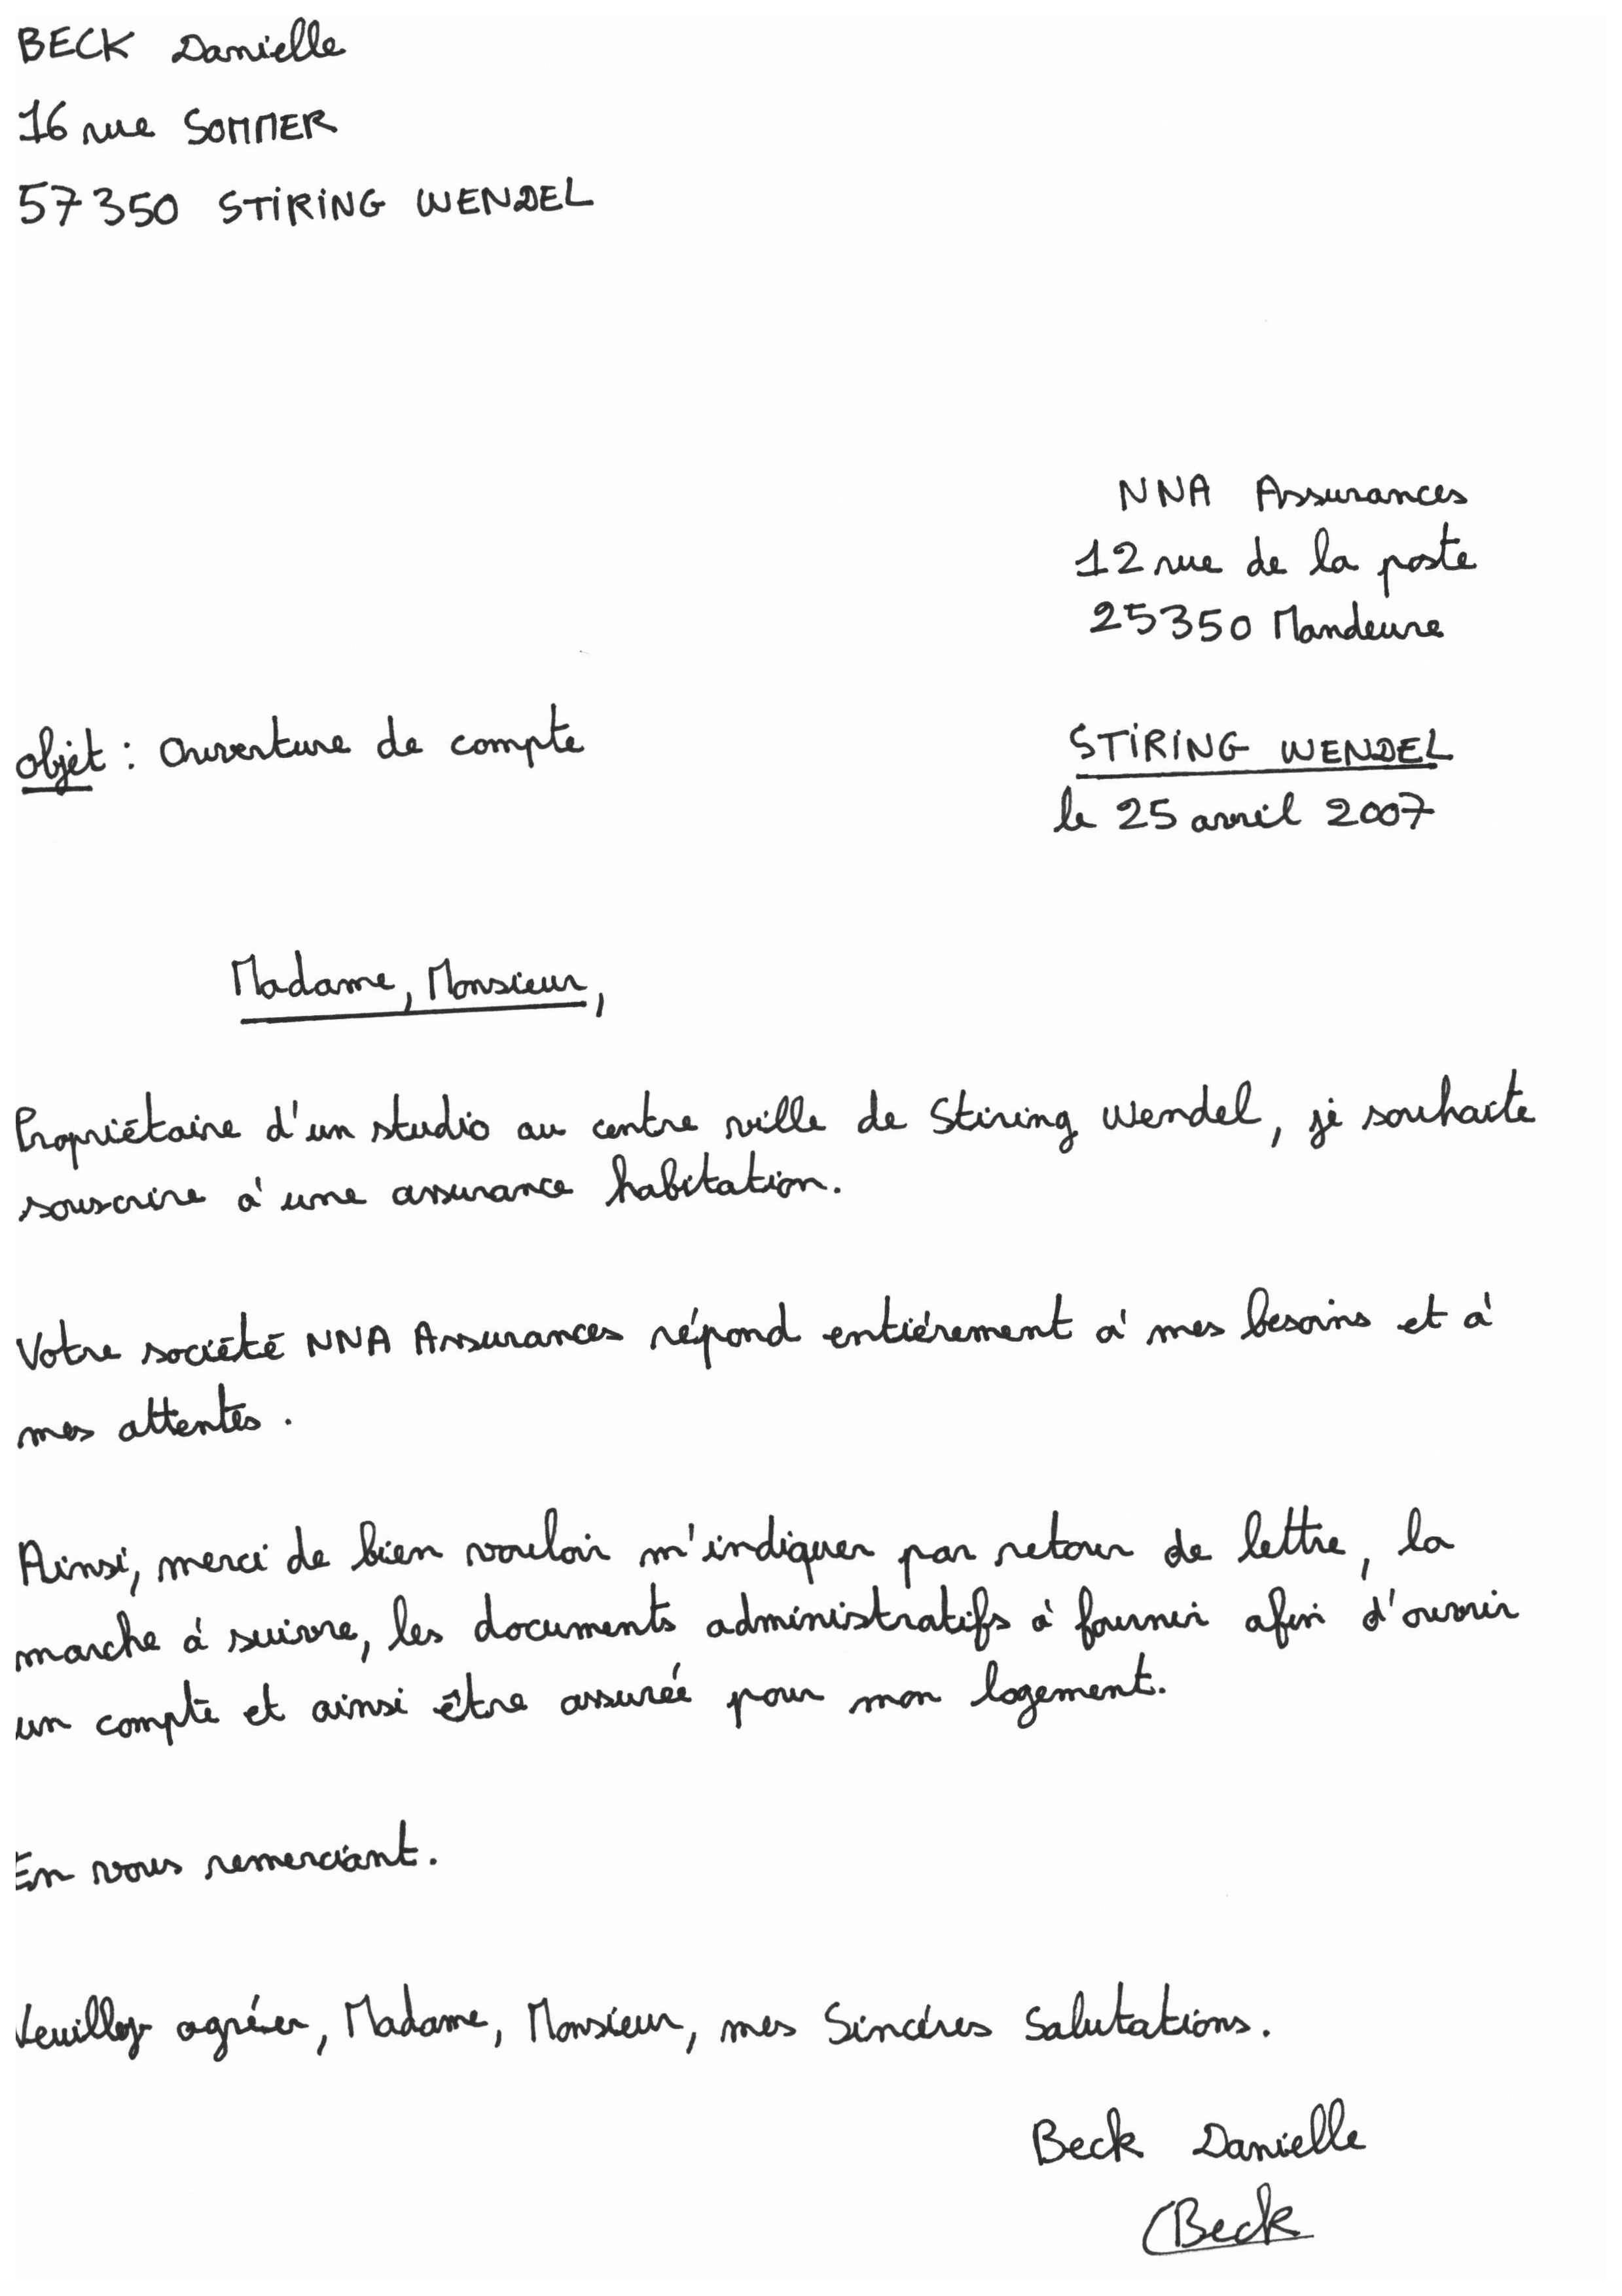 BECK Danielle
16 rue SOMMER
57350 STIRING WENDEL
NNA Assurances
12 rue de la poste
25350 Mandeure
objet : Ouverture de compte
STIRING WENDEL
le 25 avril 2007
Madame, Monsieur,
Propriétaire d'un studio au centre ville de Stiring Wendel, je souhaite
souscrire à une assurance habitation.
Votre société NNA Assurances répond entiérement à mes besoins et à
mes attentes.
Ainsi, merci de bien vouloir m'indiquer par retour de lettre, la
marche à suivre, les documents administratifs à fournir afin d'ouvrir
un compte et ainsi être assurée pour mon logement.
En vous remerciant.
Veuillez agréer, Madame, Monsieur, mes Sincéres Salutations.
Beck Danielle
Beck